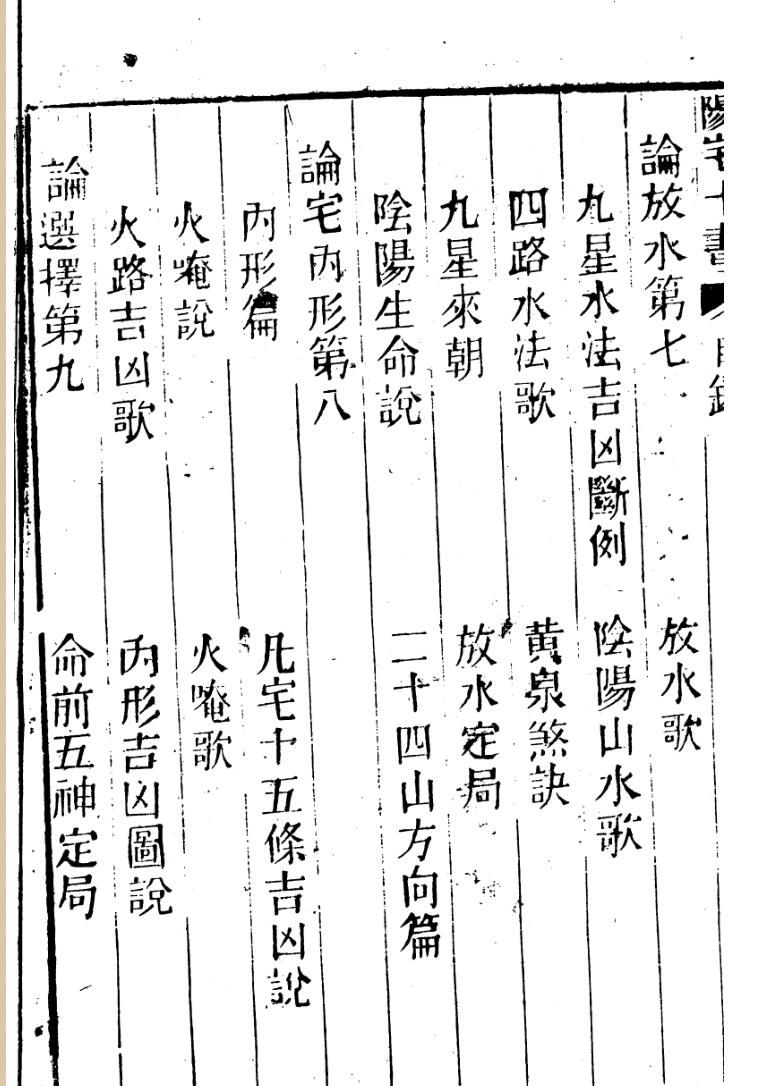 陽宅十書 目錄
論放水第七 放水歌
九星水法吉凶斷例 陰陽山水歌
四路水法歌 黄泉煞訣
九星來朝 放水定局
陰陽生命說 二十四山方向篇
論宅內形第八
內形篇 凡宅十五條吉凶說
火唵說 火唵歌
火路吉凶歌 內形吉凶圖說
論選擇第九 命前五神定局